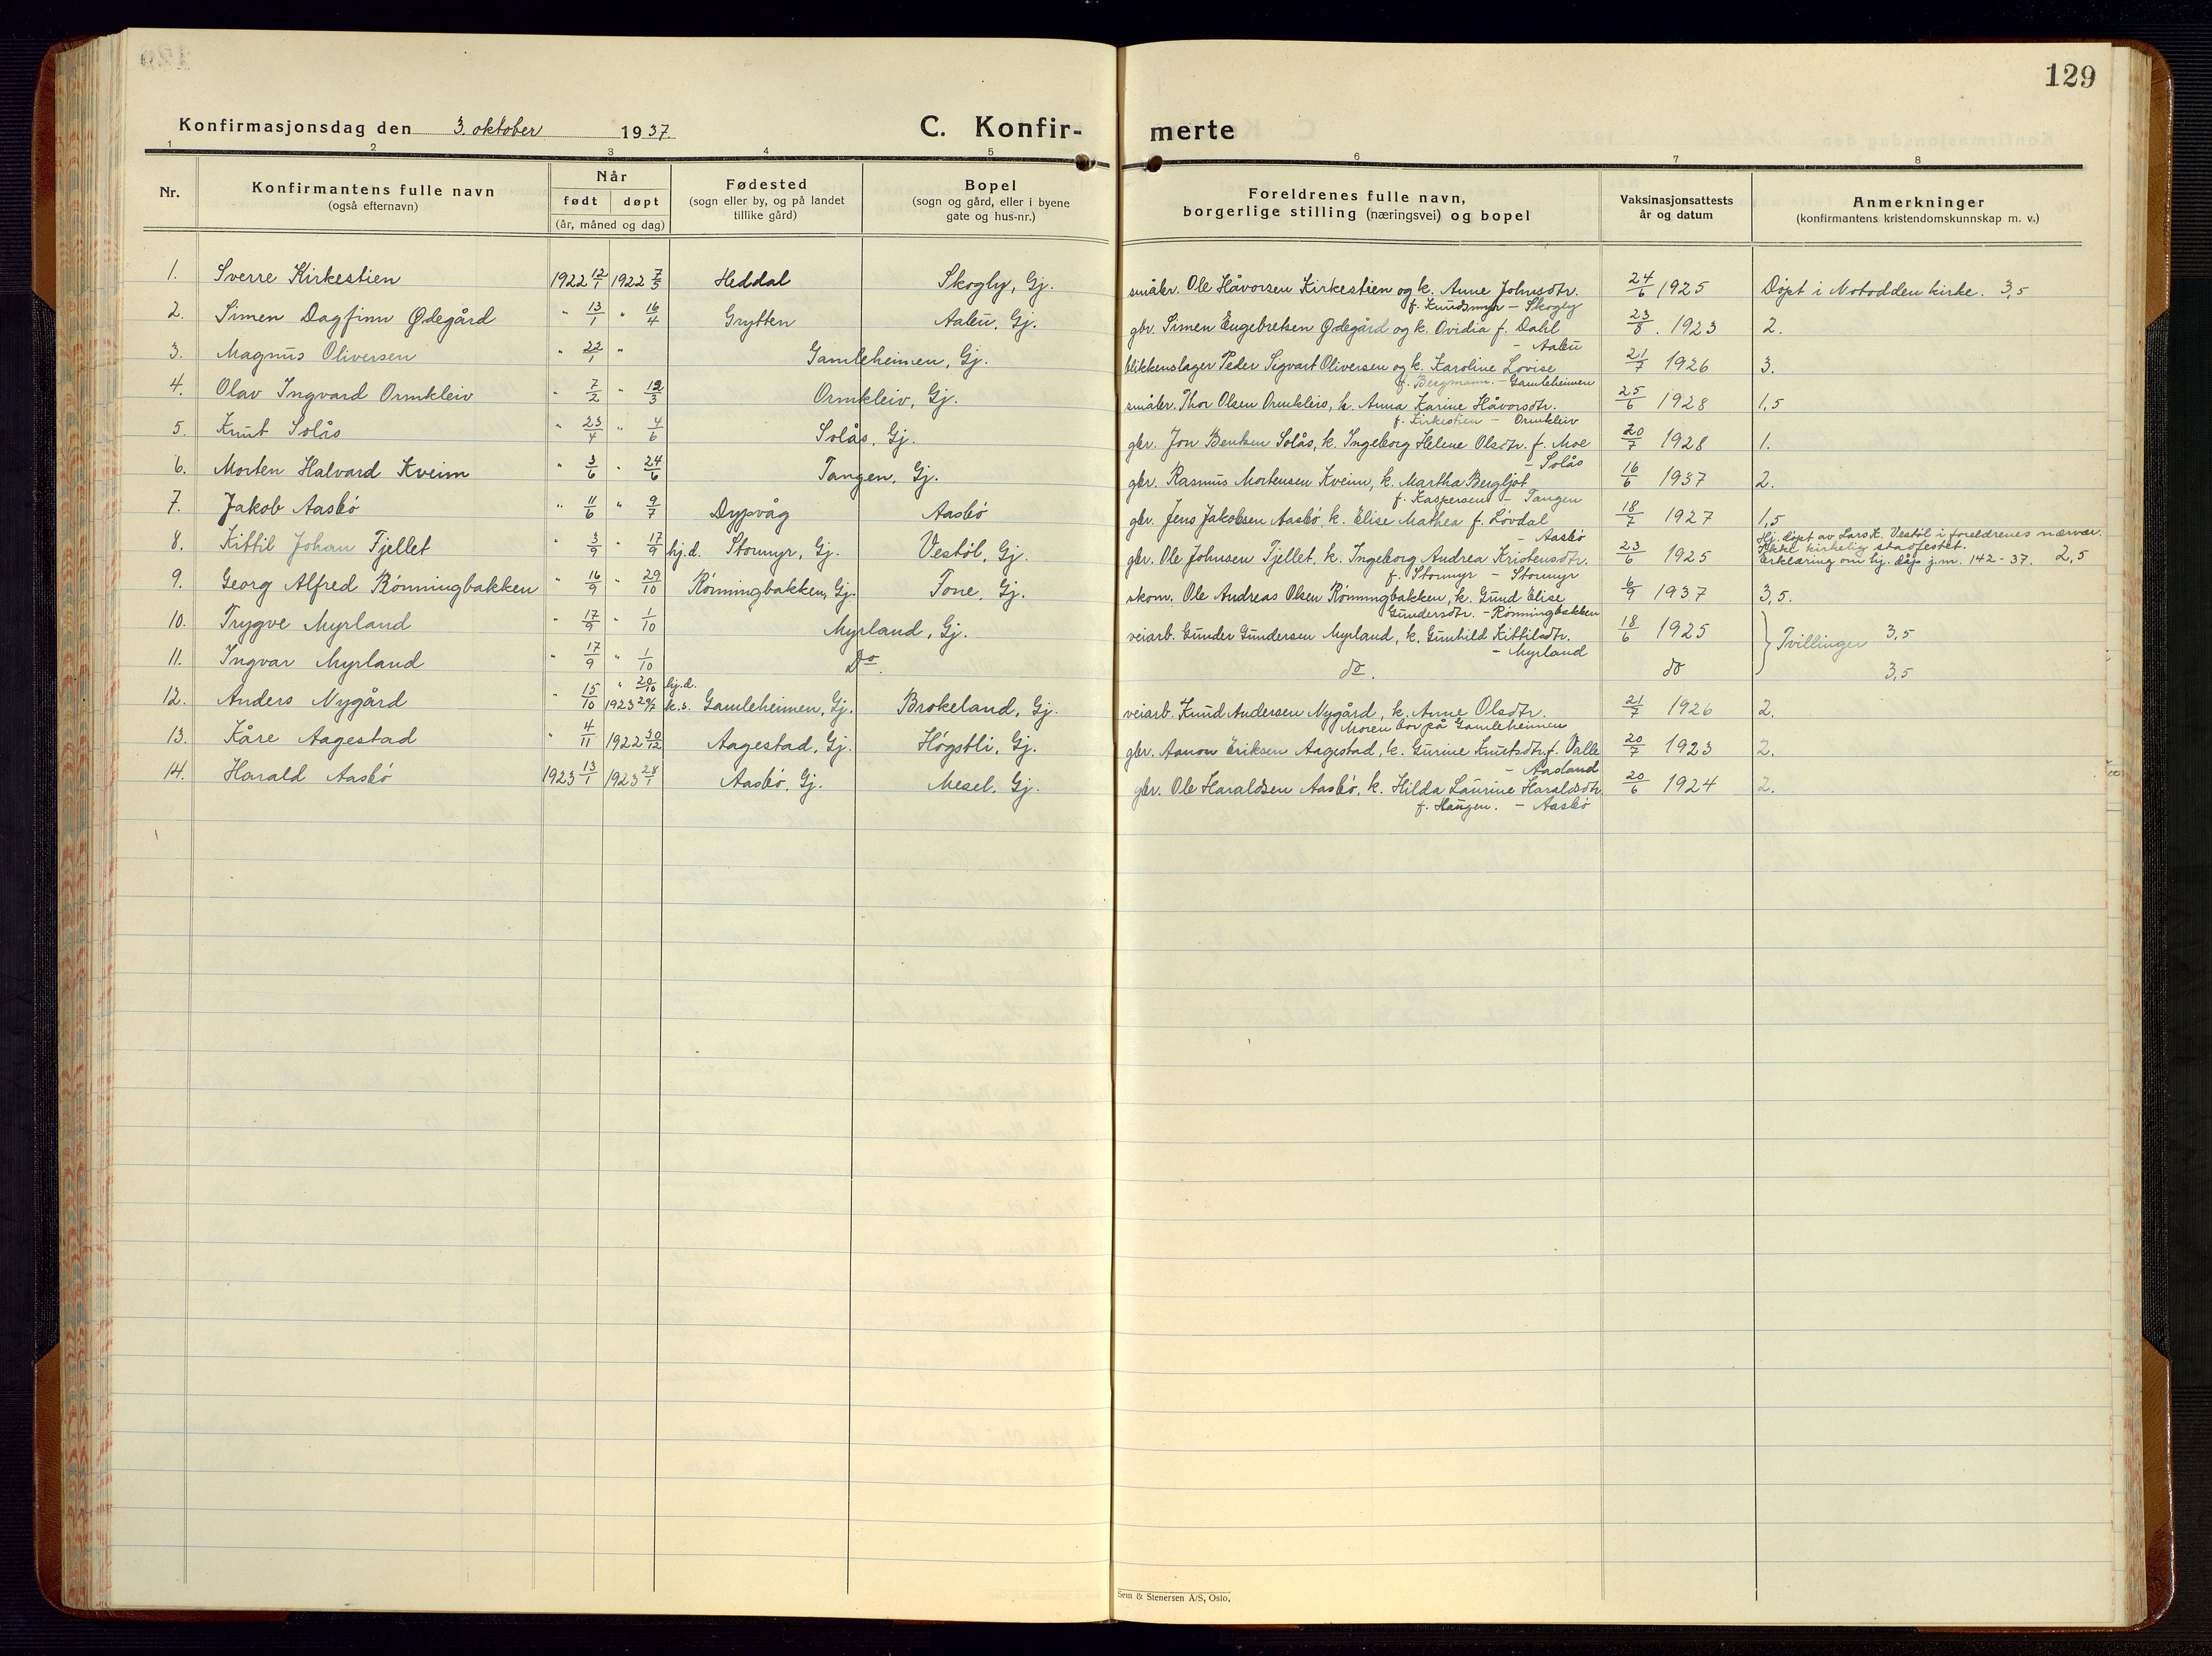 129
Konfirmasjonsdag den 3. oktober 1937.
C. Konfir- merte
1 2 3 4 5 6 7 8
Nr.
Konfirmantens fulle navn
(også efternavn)
Når
født døpt
(år, måned og dag)
Fødested
(sogn eller by, og på landet
tillike gård)
Bopel
(sogn og gård, eller i byene
gate og hus-nr.)
Foreldrenes fulle navn,
borgerlige stilling (næringsvei) og bopel
Vaksinasjonsattests
år og datum
Anmerkninger
(konfirmantens kristendomskunnskap m. v.)
1. Sverre Kirkestien 1922 12/1 1922 7/5 Heddal Skogly, Gj. småbr. Ole Håvorsen Kirkestien og k. Anne Johnsdtr. 24/6 1925 Døpt i Notodden kirke. 3,5
f. Knudsmyr – Skogly
2. Simen Dagfinn Ødegård " 13/1 " 16/4 Grytten Aabu, Gj. gbr. Simen Engebretsen Ødegård og k. Ovidia f. Dahl 23/8. 1923 2.
– Aabu
3. Magnus Oliversen " 22/1 " Gamleheimen, Gj. blikkenslager Peder Sigvart Oliversen og k. Karoline Lovise 21/7 1926 3.
f. Bergmann. – Gamleheimen
4. Olav Ingvard Ormkleiv " 7/2 " 12/3 Ormkleiv, Gj. småbr. Thor Olsen Ormkleiv, k. Anna Karine Håvorsdtr. 25/6 1928 1,5
f. Kirkestien – Ormkleiv
5. Knut Solås " 23/4 " 4/6 Solås, Gj. gbr. Jon Bentsen Solås, k. Ingeborg Helene Olsdtr. f. Moe 20/7 1928 1.
– Solås
6. Morten Halvard Kveim " 3/6 " 24/6 Tangen, Gj. gbr. Rasmus Mortensen Kveim, k. Martha Bergljot 16/6 1937 2.
f. Kaspersen – Tangen
7. Jakob Aasbö " 11/6 " 9/7 Dypvåg Aasbö gbr. Jens Jakobsen Aasbö, k. Elise Mathea f. Lövdal 18/7 1927 1,5
– Aasbö
8. Kittil Johan Tjellet " 3/9 " 17/9 hj.d. Stormyr, Gj. Vestöl, Gj. gbr. Ole Johnsen Tjellet, k. Ingeborg Andrea Kristensdtr. 23/6 1925 Hj. döpt av Lars K. Vestöl i foreldrenes nærvær.
f. Stormyr – Stormyr Ikke kirkelig stadfestet.
Erklæring om hj. dåp j.nr. 142-37. 2,5
9. Georg Alfred Rönningbakken " 16/9 " 29/10 Rönningbakken, Gj. Tone, Gj. skom. Ole Andreas Olsen Rönningbakken, k. Gund Elise 6/9 1937 3,5.
Gundersdtr. – Rönningbakken
10. Trygve Myrland " 17/9 " 1/10 Myrland, Gj. veiarb. Gunder Gundersen Myrland, k. Gunhild Kittilsdtr. 18/6 1925 } Tvillinger 3,5
– Myrland
11. Ingvar Myrland " 17/9 " 1/10 Do. do. do 3,5
" 20/10 hj.d.
12. Anders Nygård " 15/10 1923 29/7 k.s. Gamleheimen, Gj. Brokeland, Gj. veiarb. Knud Andersen Nygård, k. Anne Olsdtr. 21/7 1926 2.
Moren bor på Gamleheimen
13. Kåre Aagestad " 4/11 1922 30/12 Aagestad, Gj. Högstli, Gj. gbr. Aanon Eriksen Aagestad, k. Gurine Knutsdtr. f. Valle 20/7 1923 2.
– Aasland
14. Harald Aasbö 1923 13/1 1923 28/1 Aasbö, Gj. Mesel, Gj. gbr. Ole Haraldsen Aasbö, k. Hilda Laurine Haraldsdtr 20/6 1924 2.
f. Haugen. – Aasbö
Sem & Stenersen A/S, Oslo.